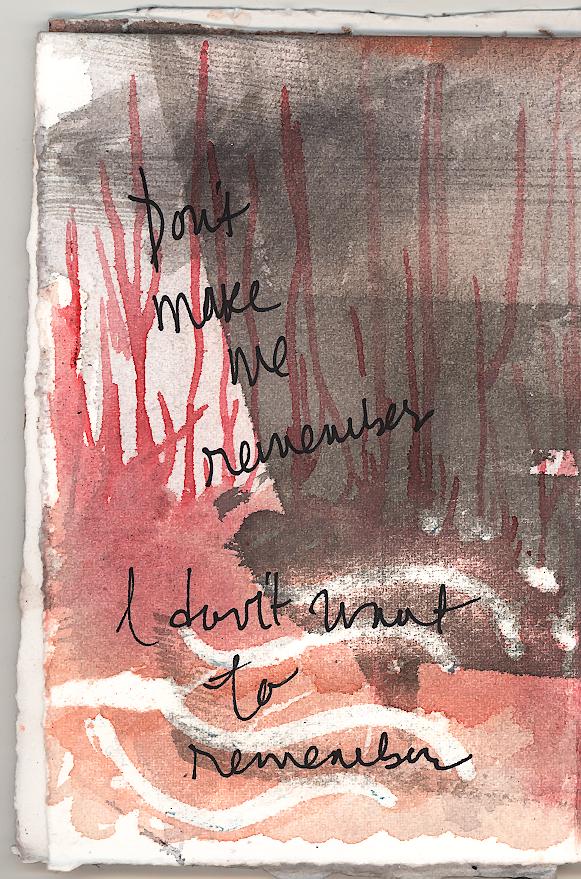 Don't
make
me
remember
I don't want
to
remember